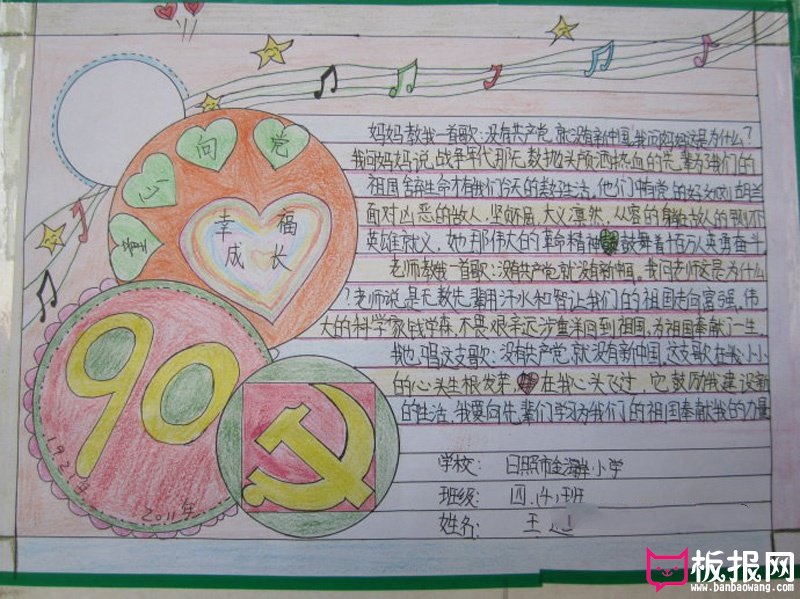 童心向党
幸福
成长
90
1921年
2011年
妈妈教我一首歌:没有共产党,就没有新中国,我问妈妈这是为什么?
我问妈妈说,战争年代那无数抛头颅洒热血的先辈为了我们的
祖国牺牲生命才有我们今天的生活。他们中有党的好女儿刘胡兰
面对凶恶的敌人,坚贞不屈,大义凛然,从容的身躯敌人的
英雄就义,她那伟大的革命精神鼓舞着千百万人英勇奋斗
老师教我一首歌:没有共产党,就没有新中国。我问老师这是为什么
?老师说是无数先辈用汗水和智让我们的祖国走向富强,伟
大的科学家钱学森,不畏艰辛远涉重洋回到祖国,为祖国奉献了一生
我也唱这支歌:没有共产党,就没有新中国,这支歌在我小小
的心头生根发芽,在我心头飞过,它鼓历我建设新
的生活,我要向先辈们学习为我们的祖国奉献我的力量
学校:日照市金海岸小学
班级:四.14.1班
姓名:王
板报网
www.banbaowang.com